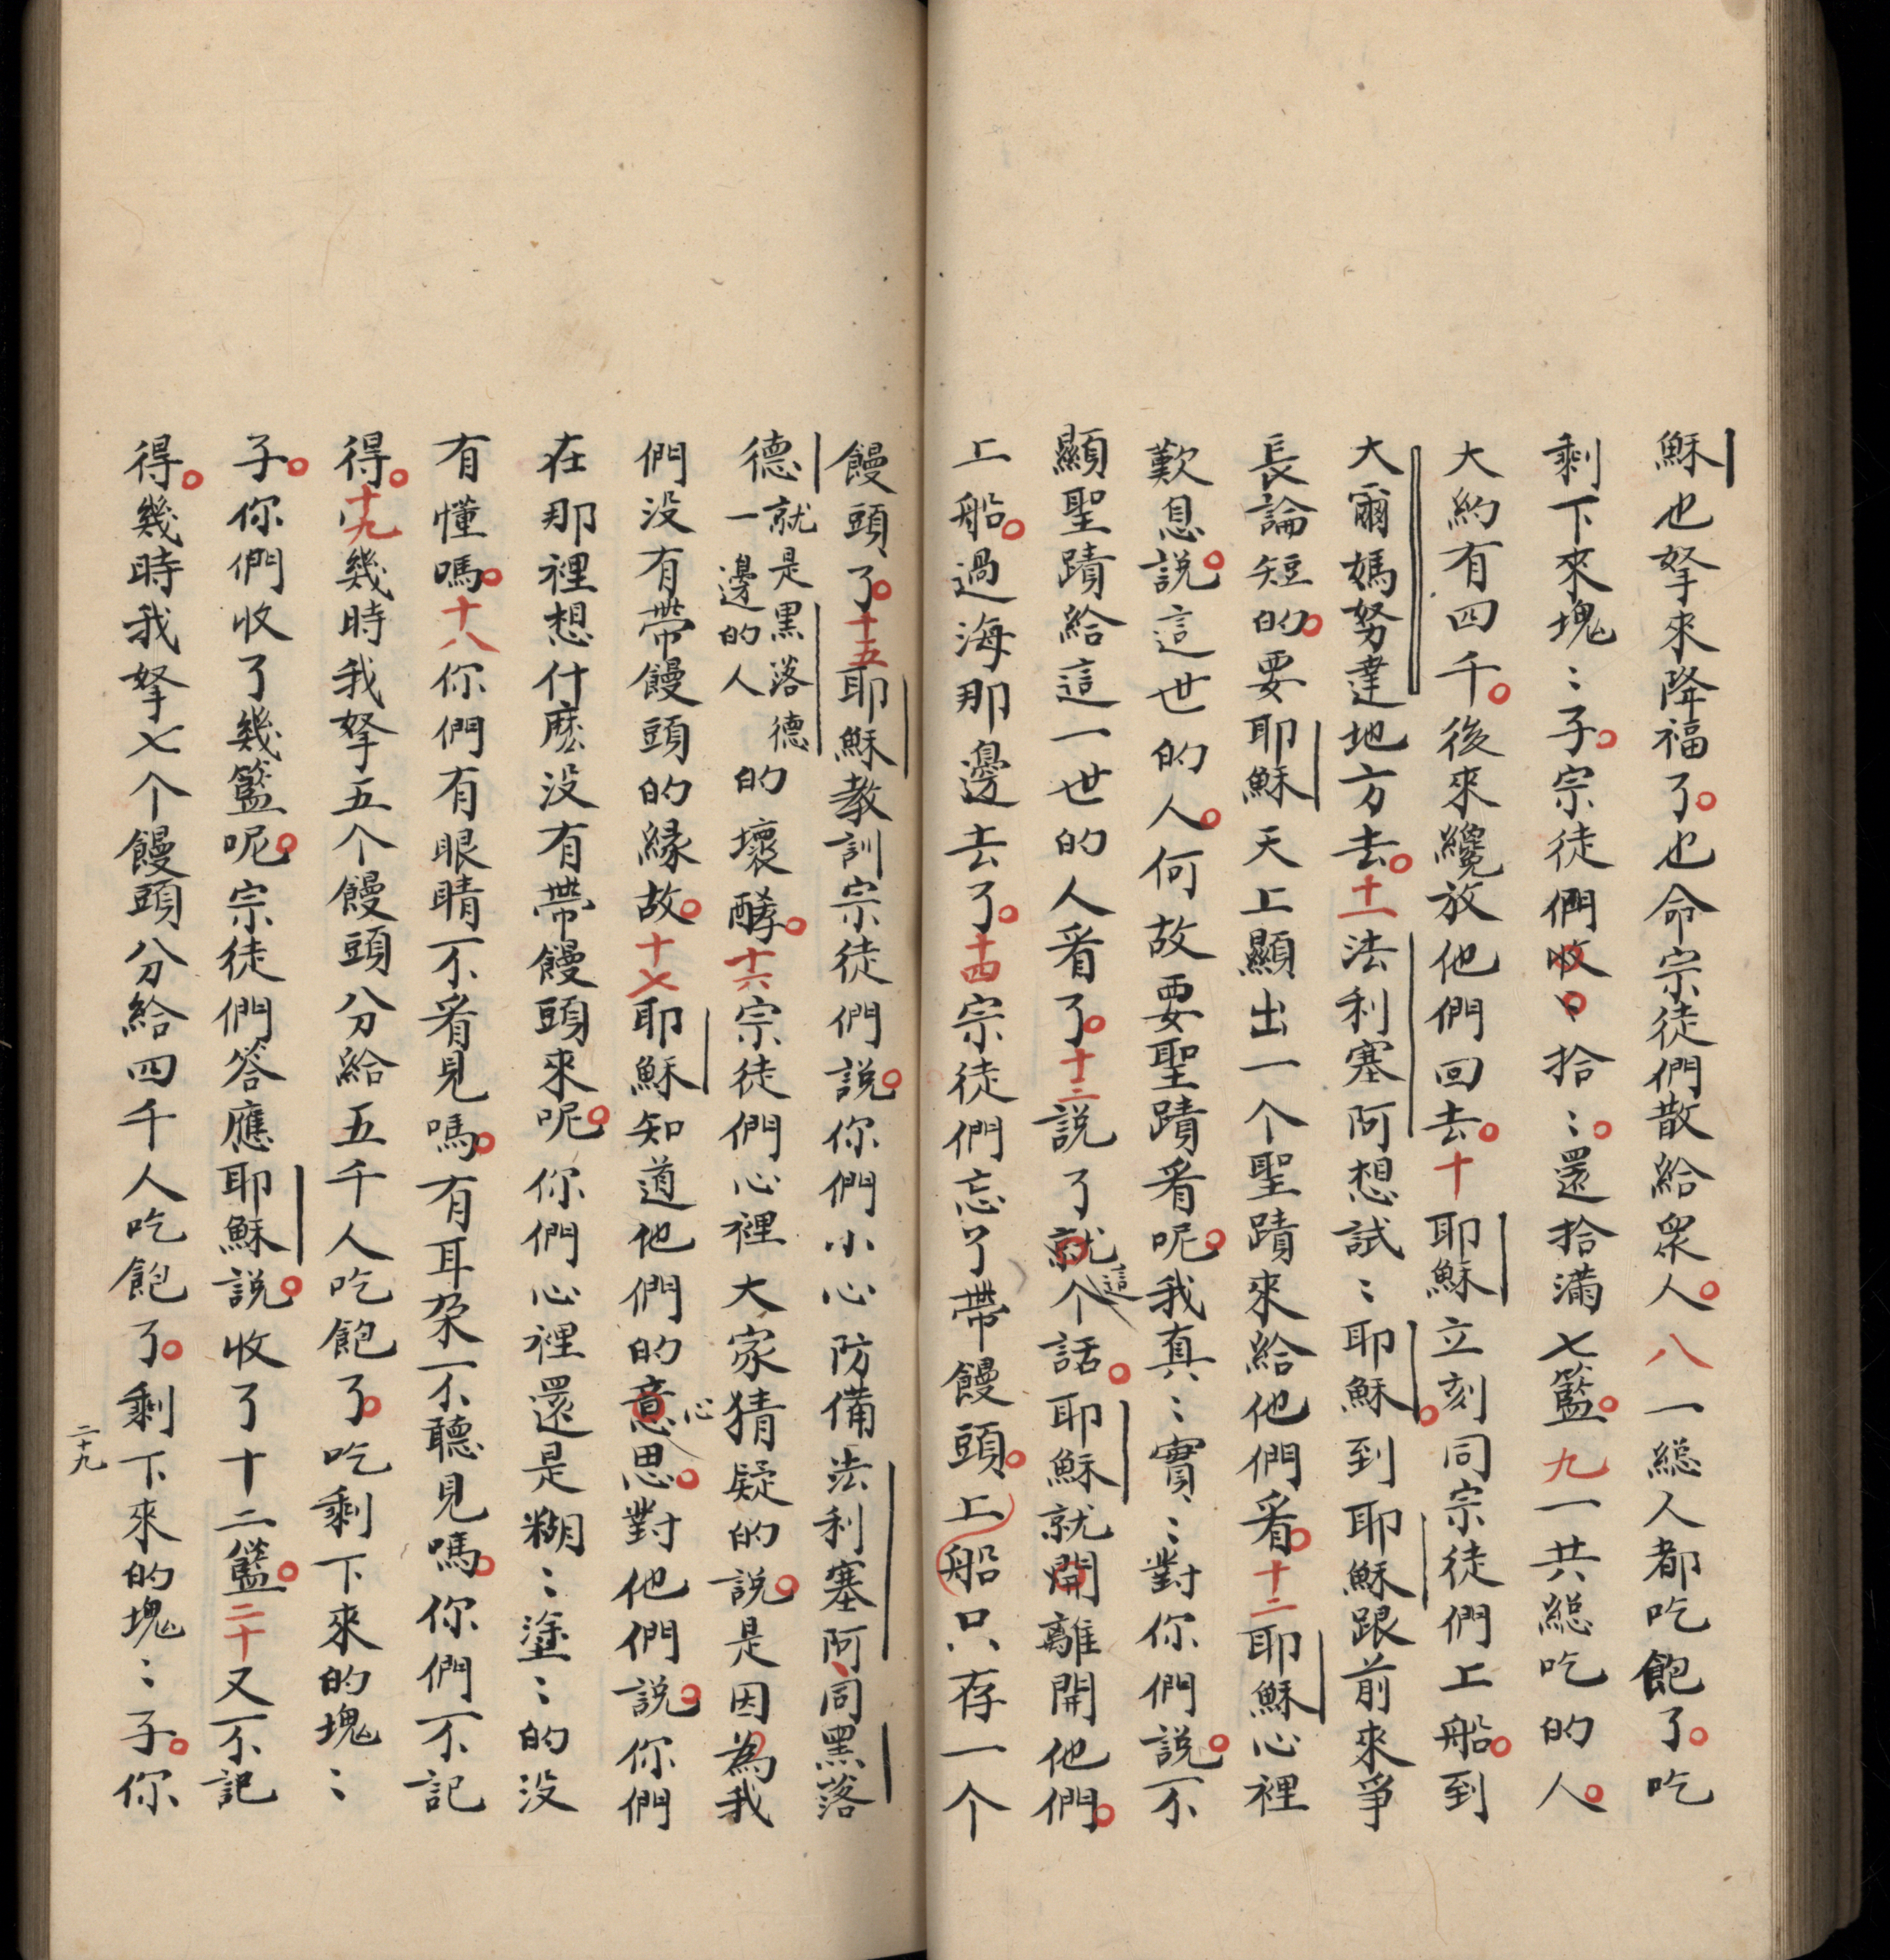 穌也拏來降福了。也命宗徒們散給衆人。八一総人都吃飽了。吃
剩下來塊：子。宗徒們收、拾：。還拾滿七籃。九一共総吃的人。
大約有四千。後來纔放他們回去。十耶穌立刻同宗徒們上船。到
大爾媽努達地方去。十一法利塞阿想試：耶穌。到耶穌跟前來爭
長論短的。要耶穌天上顯出一个聖蹟來給他們看。十二耶穌心裡
歎息。說這世的人。何故要聖蹟看呢。我真：實：對你們說。不
顯聖蹟給這一世的人看了。十三說了就這个話。耶穌就開離開他們。
上船。過海那邊去了。十四宗徒們忘了帶饅頭。上船只存一个
饅頭了。十五耶穌教訓宗徒們說。你們小心防備法利塞阿、同黑落
德就是黑落德一邊的人的壞酵。十六宗徒們心裡大家猜疑的說。是因為我
們没有帶饅頭的緣故。十七耶穌知道他們的意心思。對他們說。你們
在那裡想什麽没有帶饅頭來呢。你們心裡還是糊：塗：的没
有懂嗎。十八你們有眼睛不看見嗎。有耳朶不聽見嗎。你們不記
得。十九幾時我拏五个饅頭分給五千人吃飽了。吃剩下來的塊：
子。你們收了幾籃呢。宗徒們答應耶穌說。收了十二籃。二十又不記
得。幾時我拏七个饅頭分給四千人吃飽了。剩下來的塊：子。你
二十九